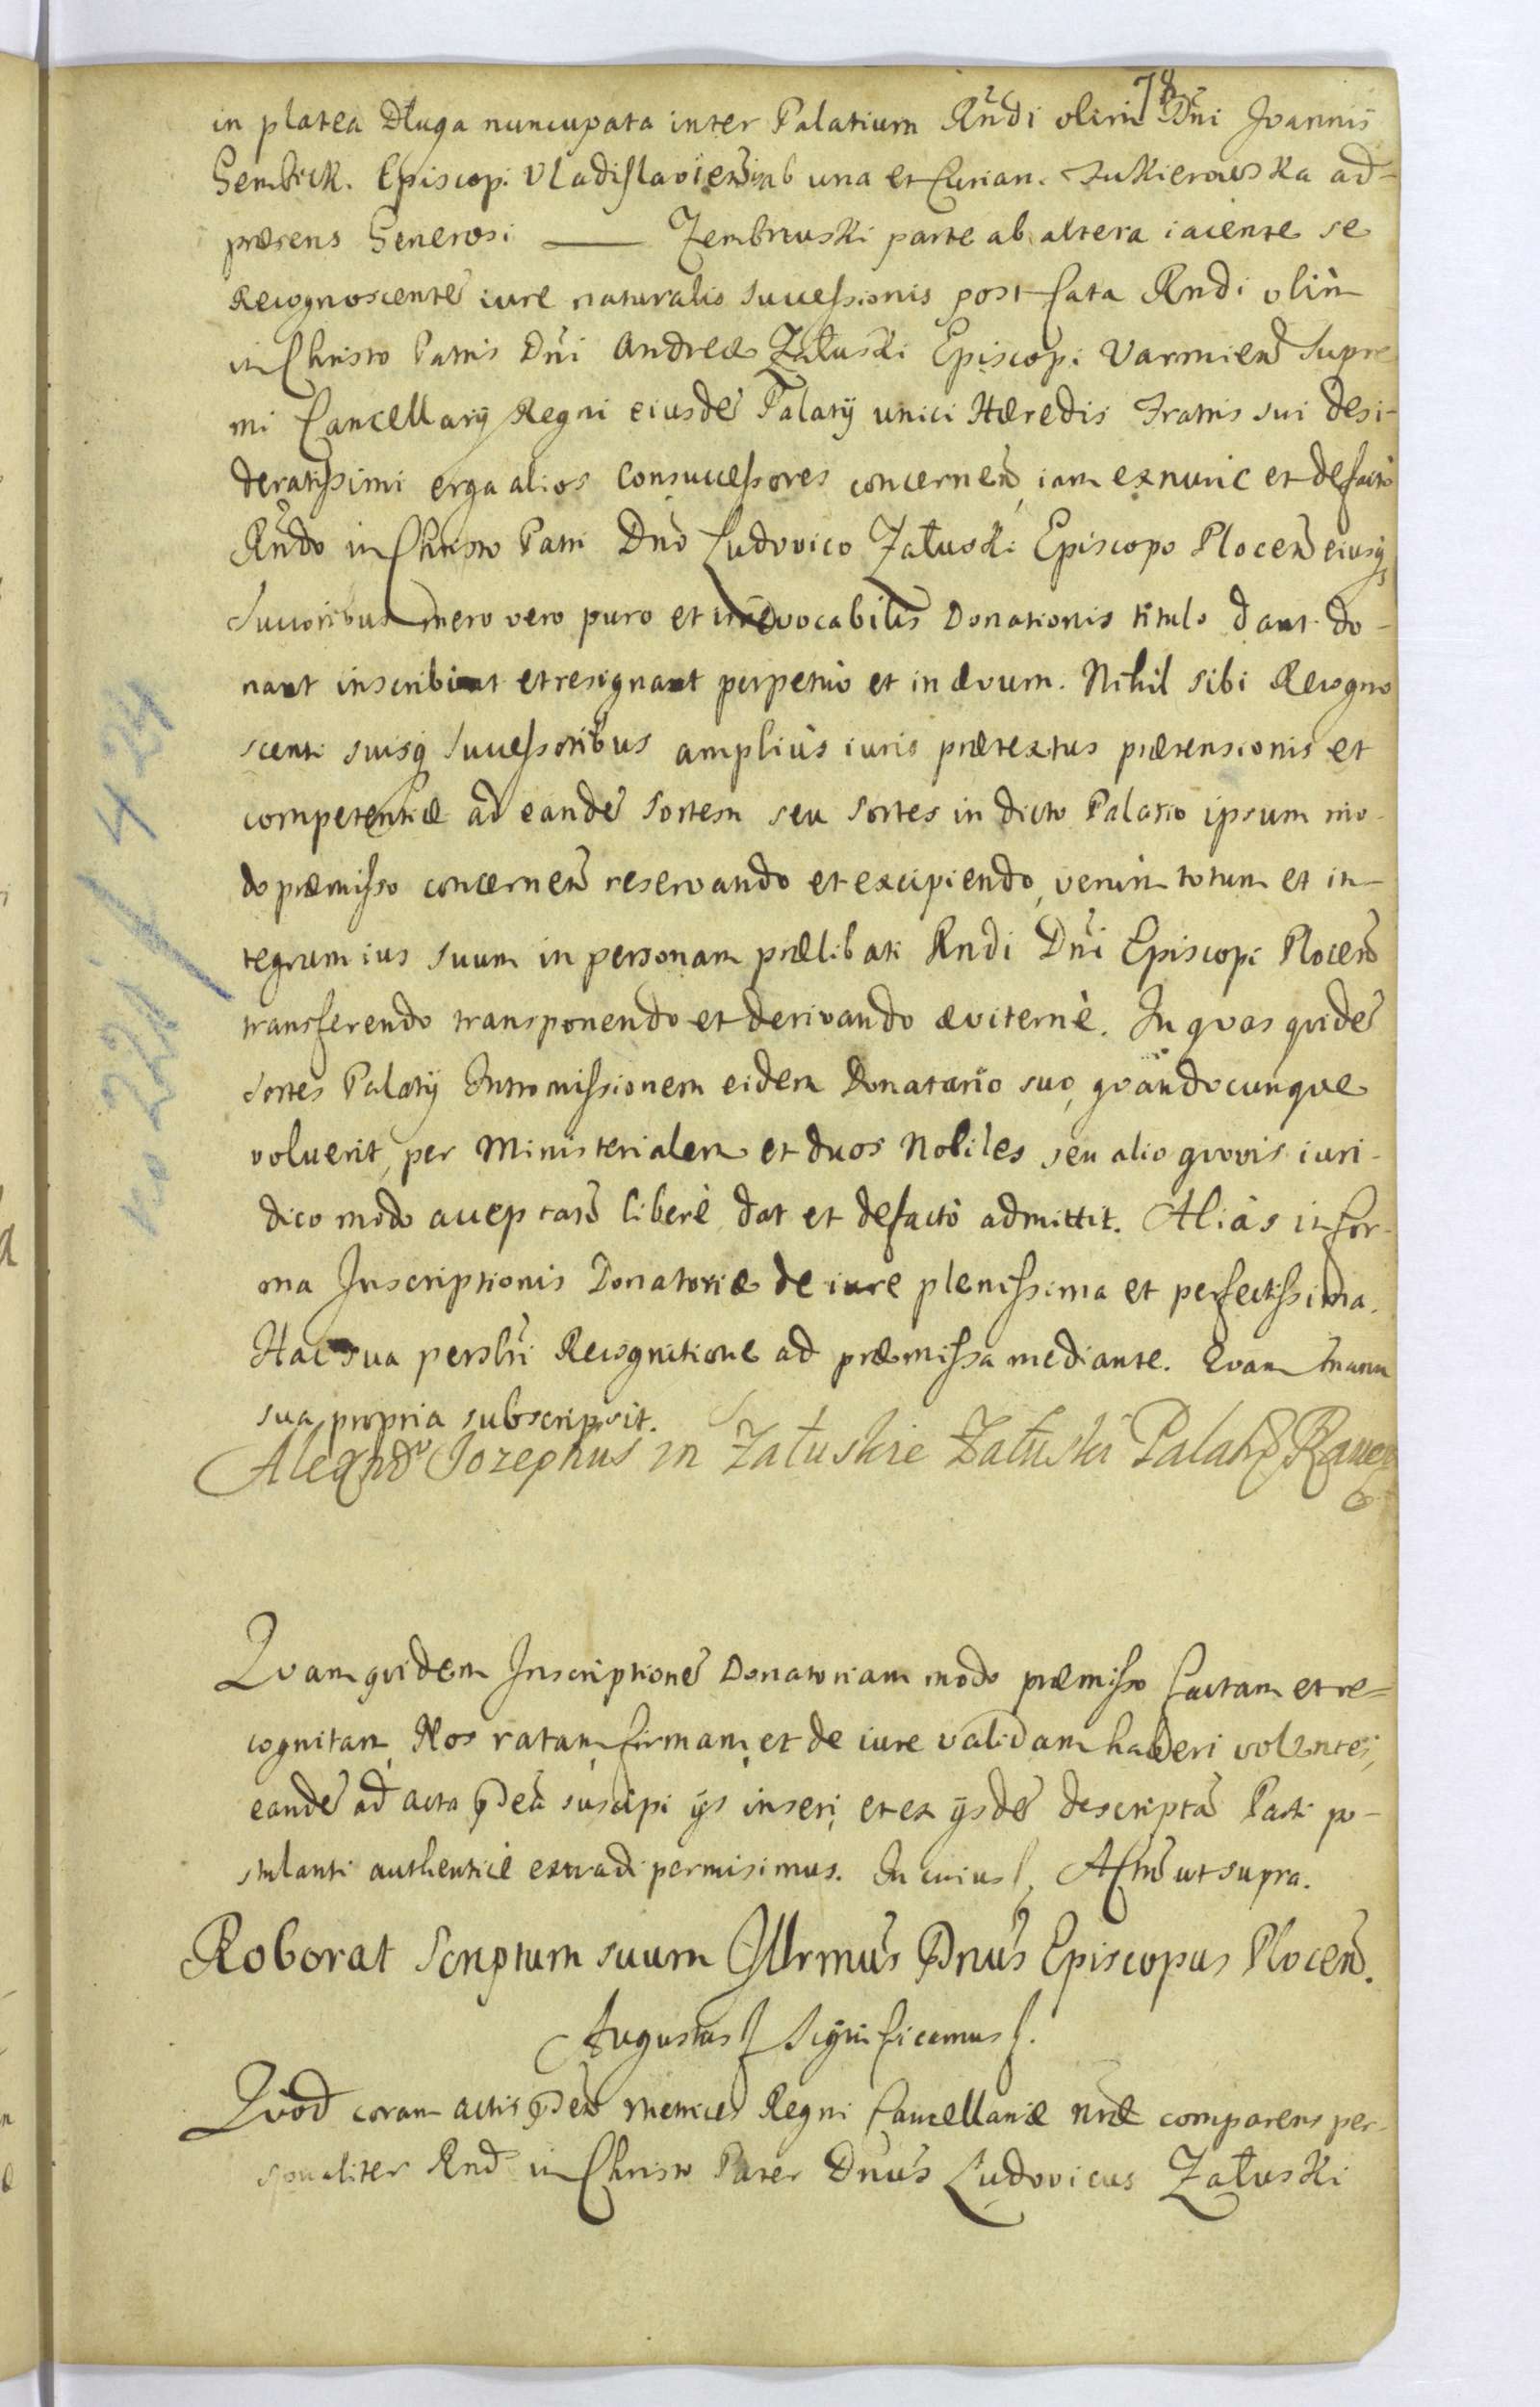 78
in platea Długa nuncupata inter Palatium Rńdi olim Dńi Joannis
Gembick. Episcopi Vladislavień ab una et Curiam Zukierowska ad-
præsens Generosi —— Zembrzuski parte ab altera iacente se
Recognoscentẽ iure naturalis successionis post fata Rndi olim
in Christo Patris Dńi Andreæ Załuski Episcopi Varmień Supre
mi Cancellarÿ Regni eiusdẽ Palatÿ unici Hæredis Fratris sui desi-
deratissimi erga alios Consuccessores concerneñ, iam exnunc et defacto
Rńdo in Christo Patri Dńo Ludovico Załuski Episcopo Ploceñ eiusq̃
Succoribus mero vero puro et irrevocabilis Donationis titulo dant do-
nant inscribunt et resignant perpetuò et in ævum. Nihil sibi Recogno
scenti suisq̃ Successoribus ampliùs iuris prætextus prætensionis et
competentiæ ad eandẽ sortem seu sortes in dicto Palatio ipsum mo-
do præmisso concerneñ reservando et excipiendo, verùm totum et in-
tegrum ius suum in personam prælibati Rndi Dńi Episcopi Ploceñ
transferendo transponendo et derivando æviternè. In quas quidẽ
sortes Palatÿ Intromissionem eidem Donatario suo, quandocunque
voluerit, per Ministerialem et duos Nobiles seu alio quovis iuri-
dico modo acceptañ liberè dat et defactò admittit. Aliàs in for-
ma Inscriptionis Donatoriæ de iure plenissima et perfectissima.
Hac sua persłri Recognitione ad præmissa mediante. Quam manu
sua propria subscripsit.
Alexndr Jozephus in Załuskie Załuski Palatẽ Raueñ
Quam quidem Inscriptionẽ Donatoriam modo præmisso factam et re=
cognitam, Nos ratam, firmam, et de iure validam haberi volentes,
eandẽ ad acta p̃deã suscipi ÿs inseri, et ex ÿsdẽ descriptã Parti po-
stulanti authenticè extradi permisimus. In cuius ʃ. Actũ ut supra.
Roborat Scriptum suum Illrmus Dnus Episcopus Ploceñ.
Augustus ʃ Significamus ʃ.
Quod coram actis p̃deñ Metrices Regni Cancellariæ nræ comparens per-
sonaliter Rnd in Christo Pater Dnus Ludovicus Załuski